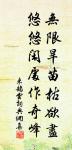 無限旱苗枯欲盡
悠悠閑處作奇峰
來鵠雲詩共興集